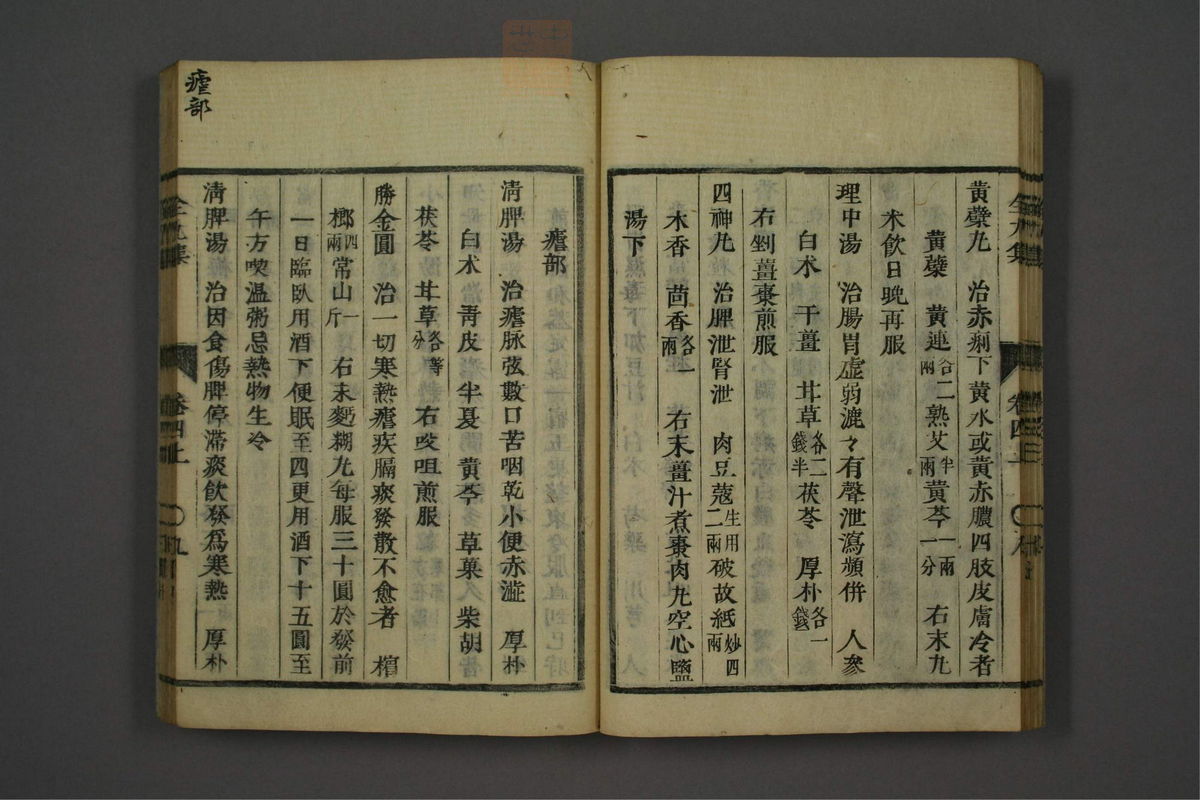 黃蘗九　治赤痢下黃水或黃赤膿四肢皮膚冷者
黃蘗　黃連各二兩熟艾半兩黃芩一兩一分　右末九
米飲日晚再服
理中湯　治腸胃虛弱漉々有聲泄瀉頻併　人參
白朮　干薑　甘草各二錢半茯苓　厚朴各一錢
右剉薑棗煎服
四神九　治脾泄腎泄　肉豆蔻生用二兩破故紙炒四兩
木香　茴香各一兩　右末薑汁煮棗肉九空心鹽
湯下
全九集　卷四上　八
瘧部
瘧部
淸脾湯　治瘧脉弦數口苦咽乾小便赤澁　厚朴
白朮　靑皮　半夏　黃芩　草菓　柴胡
茯苓　甘草各等分　右㕮咀煎服
勝金圓　治一切寒熱瘧疾膈痰發散不愈者　檳
榔四兩常山一斤　右末麪糊九每服三十圓於發前
一日臨臥用酒下便眠至四更用酒下十五圓至
午方喫温粥忌熱物生冷
淸脾湯　治因食傷脾停滯痰飮發爲寒熱　厚朴
全九集　卷四上　九